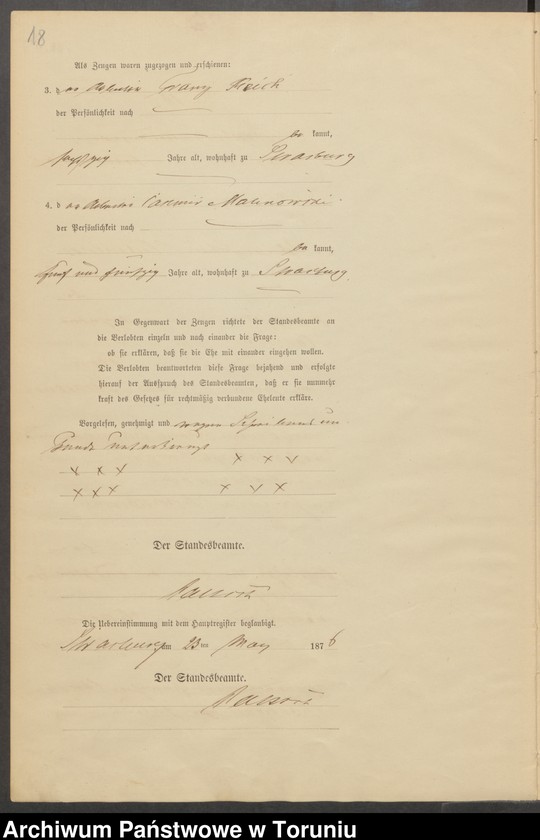 18
Als Zeugen waren zugezogen und erschienen:
3. der Arbeiter Franz Reich
der Persönlichkeit nach
be kannt,
fünfzig Jahre alt, wohnhaft zu Strasburg
4. der Arbeiter Casimir Malinowski
der Persönlichkeit nach
be kannt,
fünf und fünfzig Jahre alt, wohnhaft zu Strasburg.
In Gegenwart der Zeugen richtete der Standesbeamte an
die Verlobten einzeln und nach einander die Frage:
ob sie erklären, daß sie die Ehe mit einander eingehen wollen.
Die Verlobten beantworteten diese Frage bejahend und erfolgte
hierauf der Ausspruch des Standesbeamten, daß er sie nunmehr
kraft des Gesetzes für rechtmäßig verbundene Eheleute erkläre.
Vorgelesen, genehmigt und wegen Schreibensun
kunde unterkreuzt
x x x x x x
x x x x x x
Der Standesbeamte.
Die Uebereinstimmung mit dem Hauptregister beglaubigt.
Strasburg am 23ten May 1876
Der Standesbeamte.
Archiwum Państwowe w Toruniu